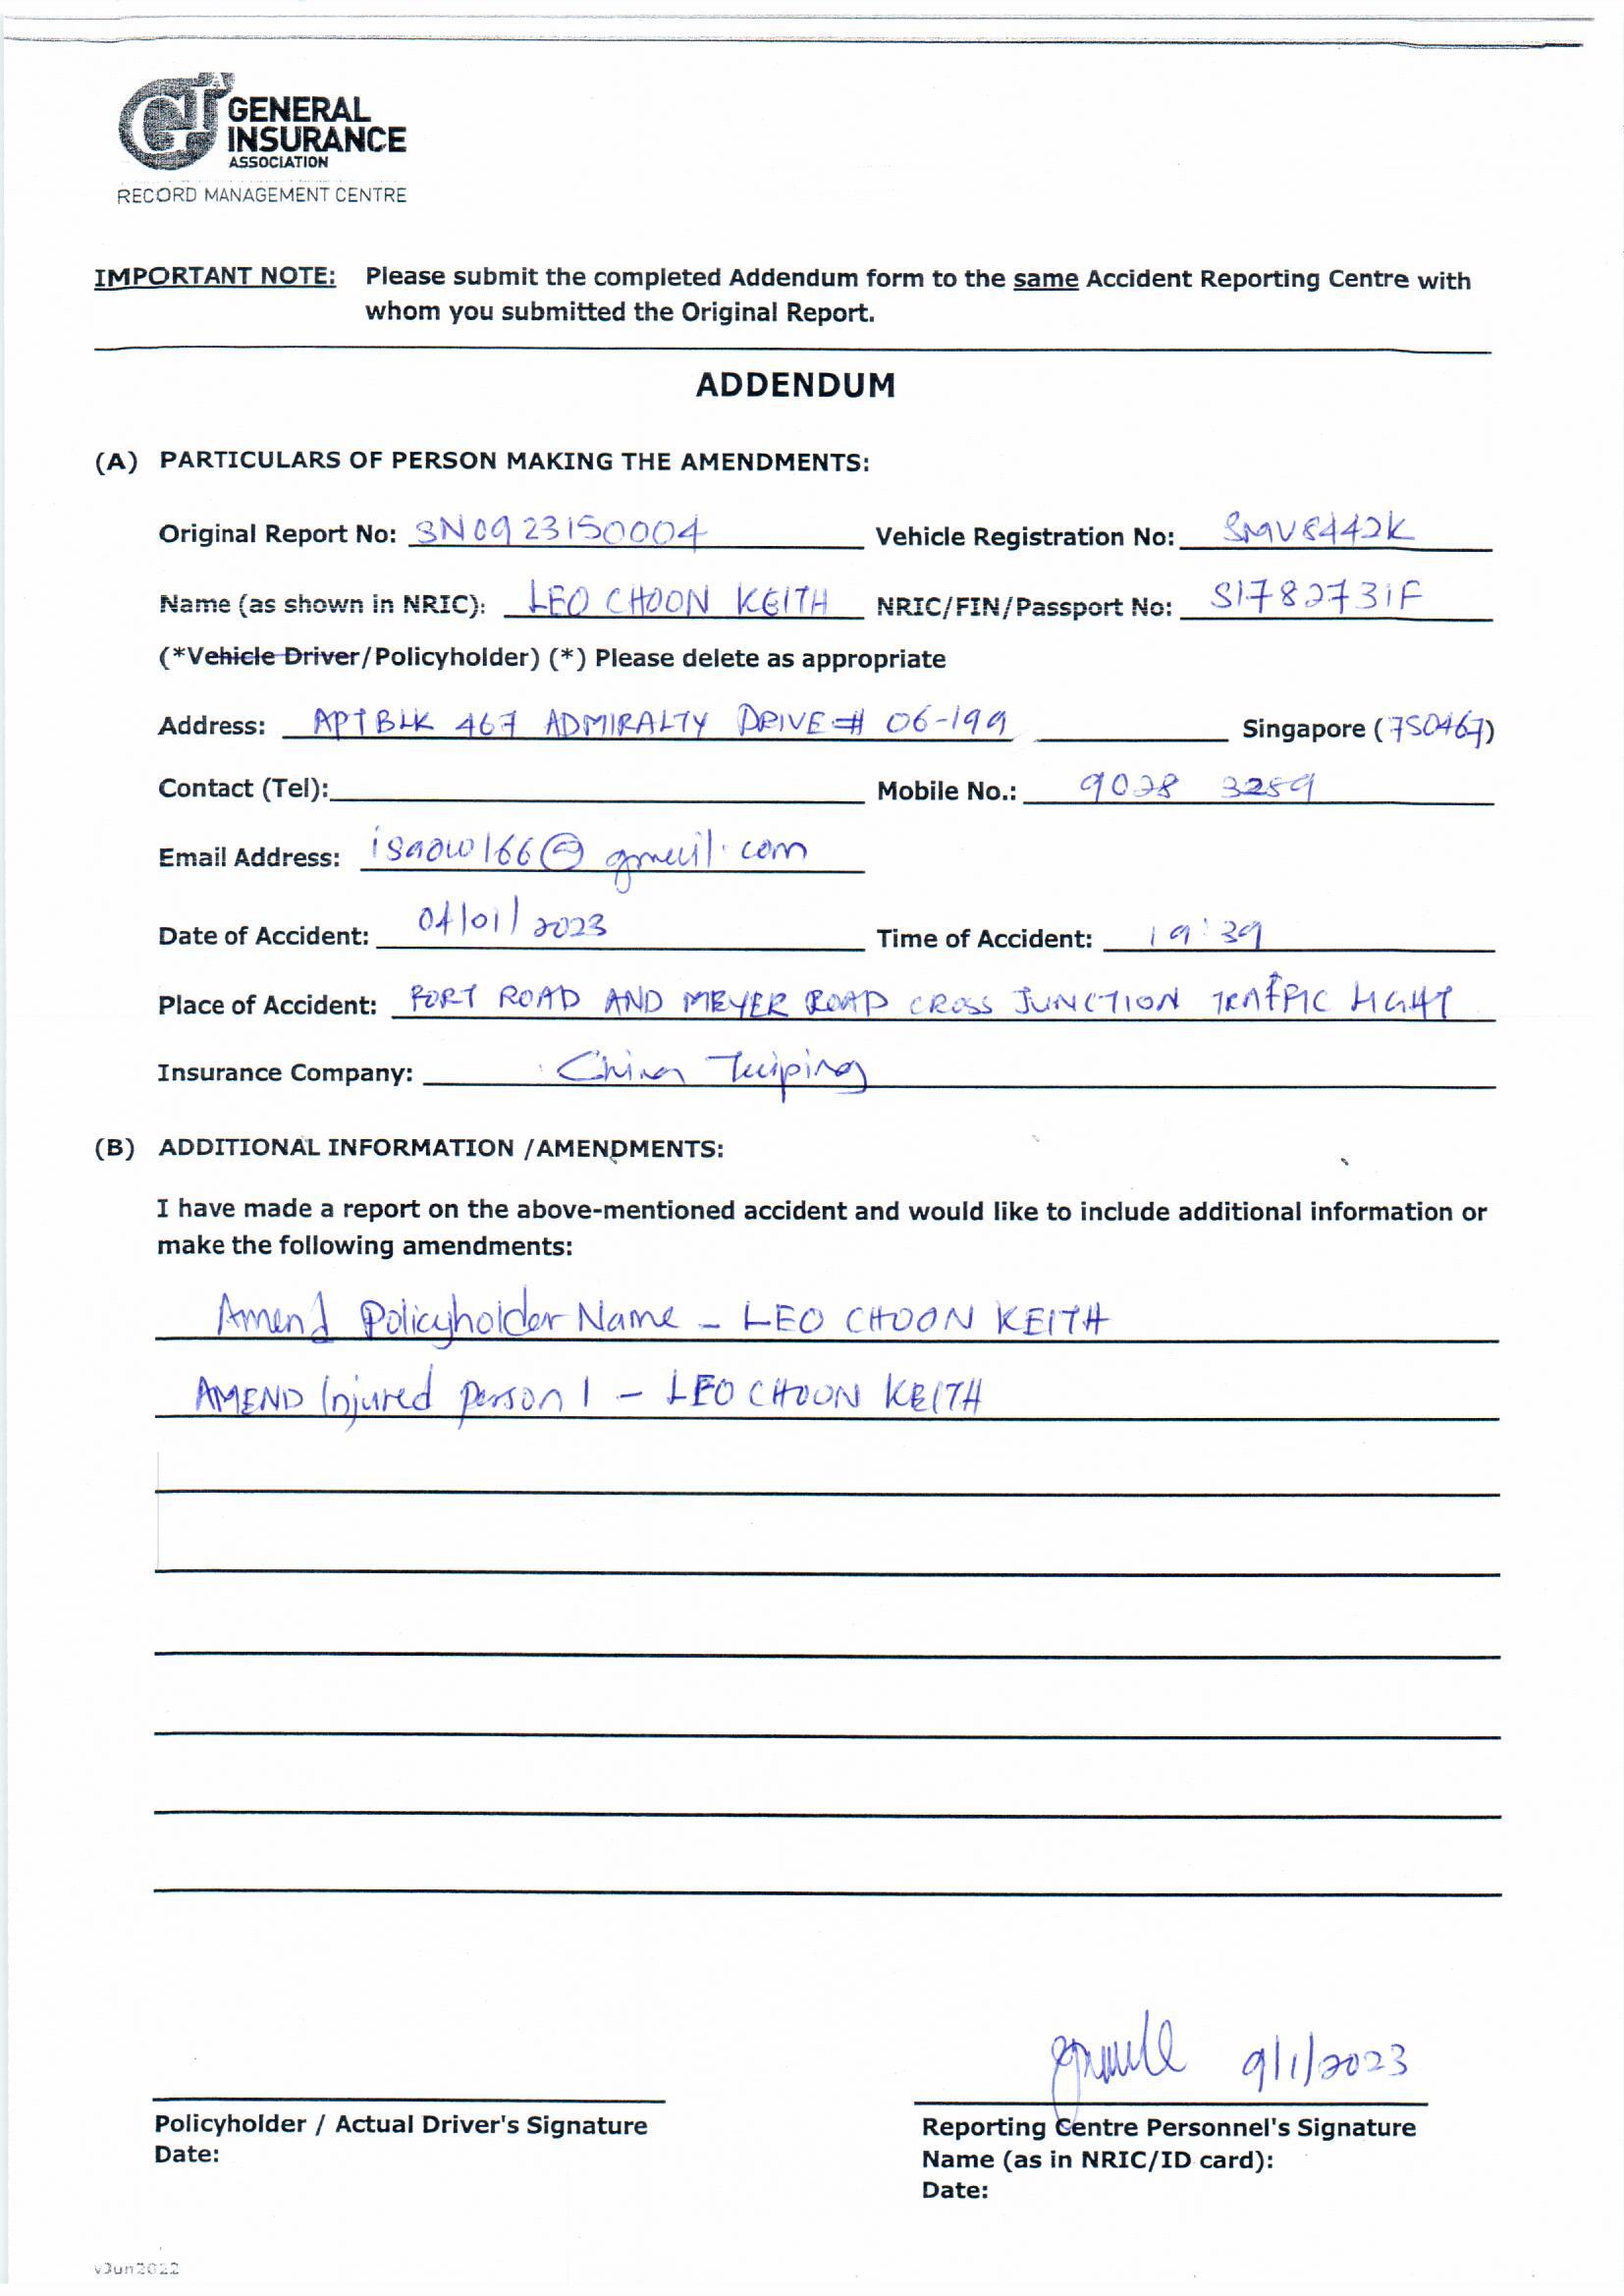 GIA GENERAL
INSURANCE
ASSOCIATION
RECORD MANAGEMENT CENTRE
IMPORTANT NOTE: Please submit the completed Addendum form to the same Accident Reporting Centre with
whom you submitted the Original Report.
ADDENDUM
(A) PARTICULARS OF PERSON MAKING THE AMENDMENTS:
Original Report No: SN0923150004 Vehicle Registration No: SMV8442K
Name (as shown in NRIC): LEO CHOON KEITH NRIC/FIN/Passport No: S1782731F
(*Vehicle Driver/Policyholder) (*) Please delete as appropriate
Address: APT BLK 467 ADMIRALTY DRIVE # 06-199 Singapore (750467)
Contact (Tel): Mobile No.: 9028 3259
Email Address: @gmail.com
Date of Accident: 04/01/2023 Time of Accident: 19:39
Place of Accident: FORT ROAD AND MEYER ROAD CROSS JUNCTION TRAFFIC LIGHT
Insurance Company: China Taiping
(B) ADDITIONAL INFORMATION /AMENDMENTS:
I have made a report on the above-mentioned accident and would like to include additional information or
make the following amendments:
Amend Policyholder Name - LEO CHOON KEITH
AMEND Injured person 1 - LEO CHOON KEITH
9/1/2023
Policyholder / Actual Driver's Signature Reporting Centre Personnel's Signature
Date: Name (as in NRIC/ID card):
Date:
vJun2022